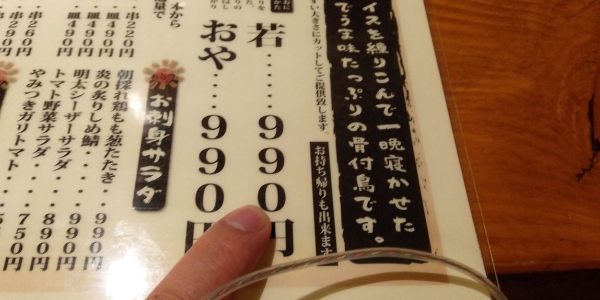 イスを練りこんで一晩寝かせた
でうま味たっぷりの骨付鳥です。
すい大きさにカットしてご提供致します。
お持ち帰りも出来ます
若・・・・・990円
おや・・・990円
お刺身サラダ
朝採れ鶏もも葱たたき・・990円
炎の炙りしめ鯖・・・・990円
明太シーザーサラダ・・・990円
トマト野菜サラダ・・・890円
やみつきガリトマト・・・750円
本から
量で
・串220円
・皿490円
・皿490円
・皿490円
・串260円
・串290円